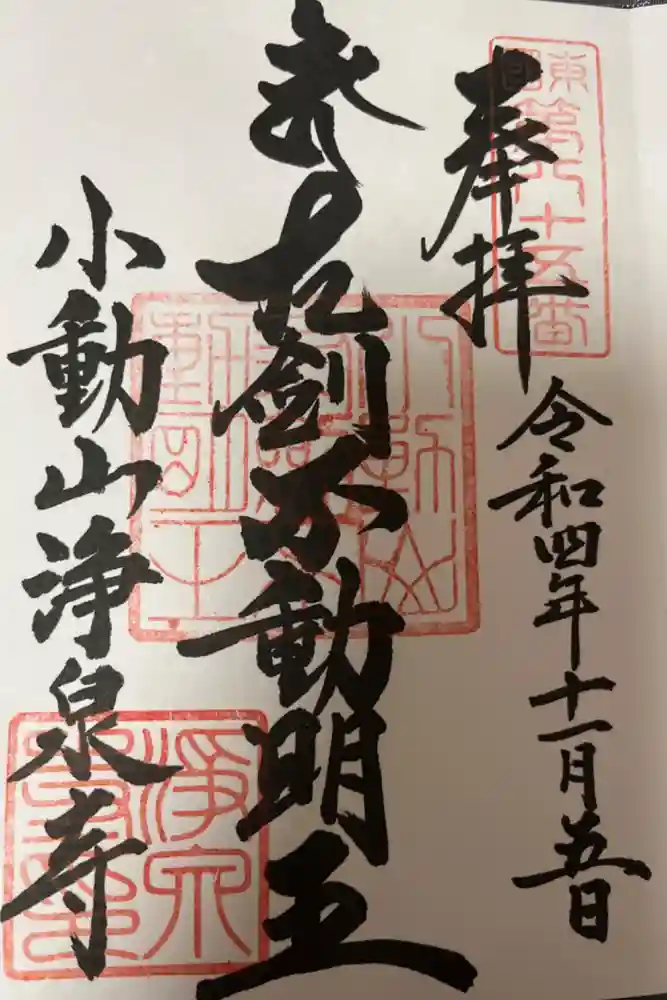 東国第八十五番
奉拝
令和四年十一月五日
剣不動明王
小動山浄泉寺
淨泉寺印